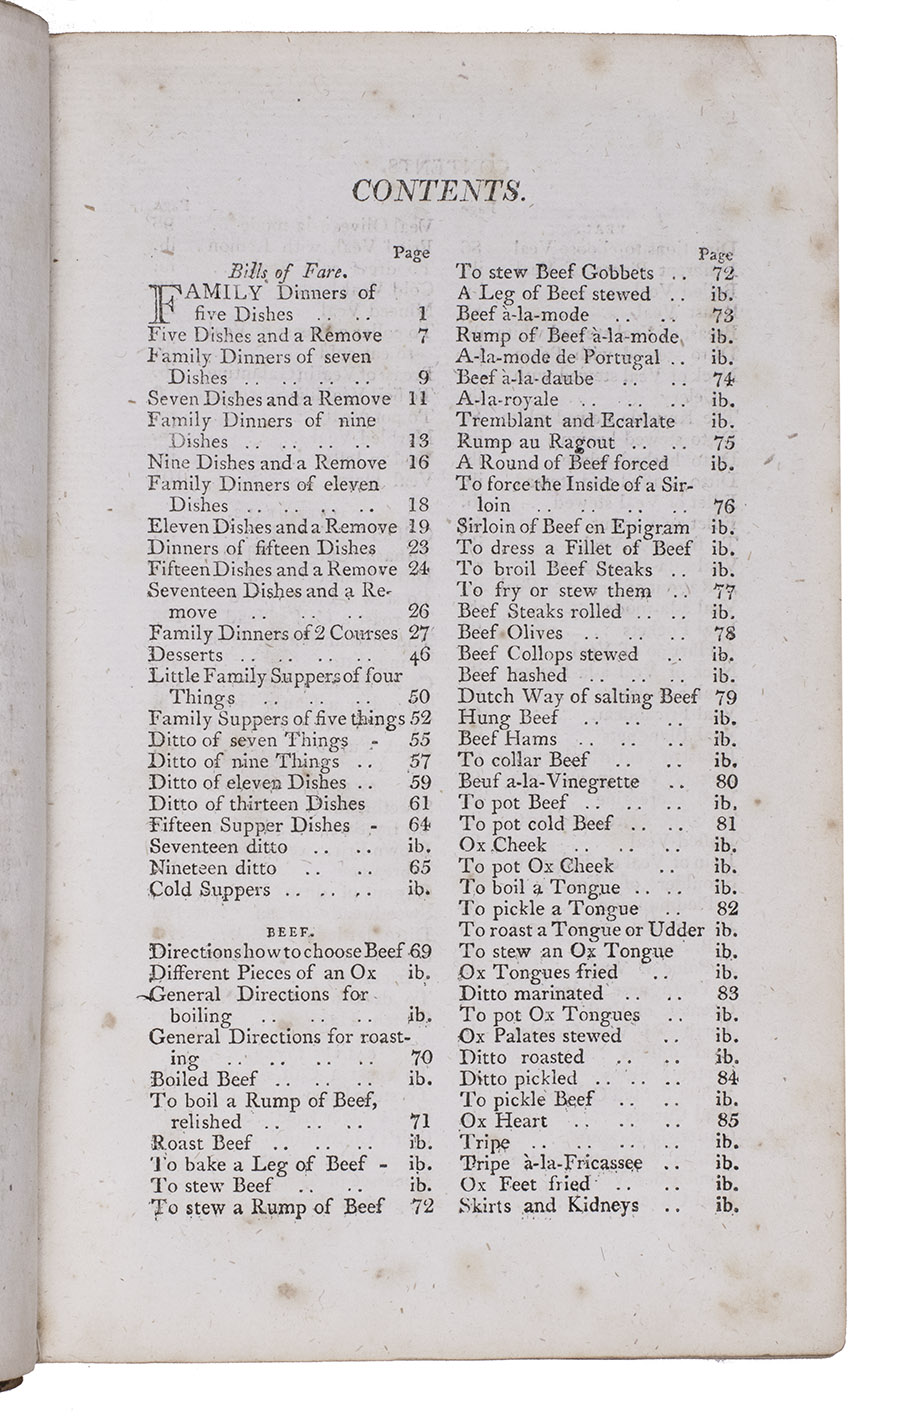 CONTENTS.
Page
Bills of Fare.
FAMILY Dinners of
five Dishes .. .. 1
Five Dishes and a Remove 7
Family Dinners of seven
Dishes .. .. .. .. 9
Seven Dishes and a Remove 11
Family Dinners of nine
Dishes .. .. .. .. 13
Nine Dishes and a Remove 16
Family Dinners of eleven
Dishes .. .. .. .. 18
Eleven Dishes and a Remove 19
Dinners of fifteen Dishes 23
Fifteen Dishes and a Remove 24
Seventeen Dishes and a Re-
move .. .. .. 26
Family Dinners of 2 Courses 27
Desserts .. .. .. .. 46
Little Family Suppers of four
Things .. .. .. 50
Family Suppers of five things 52
Ditto of seven Things - 55
Ditto of nine Things .. 57
Ditto of eleven Dishes .. 59
Ditto of thirteen Dishes 61
Fifteen Supper Dishes - 64
Seventeen ditto .. .. ib.
Nineteen ditto .. .. 65
Cold Suppers .. .. .. ib.
BEEF.
Directions how to choose Beef 69
Different Pieces of an Ox ib.
General Directions for
boiling .. .. .. ib.
General Directions for roast-
ing .. .. .. .. 70
Boiled Beef .. .. .. ib.
To boil a Rump of Beef,
relished .. .. .. 71
Roast Beef .. .. .. ib.
To bake a Leg of Beef - ib.
To stew Beef .. .. ib.
To stew a Rump of Beef 72
Page
To stew Beef Gobbets .. 72
A Leg of Beef stewed .. ib.
Beef à-la-mode .. .. 73
Rump of Beef à-la-mode ib.
A-la-mode de Portugal .. ib.
Beef à-la-daube .. .. 74
A-la-royale .. .. .. ib.
Tremblant and Ecarlate ib.
Rump au Ragout .. .. 75
A Round of Beef forced ib.
To force the Inside of a Sir-
loin .. .. .. .. 76
Sirloin of Beef en Epigram ib.
To dress a Fillet of Beef ib.
To broil Beef Steaks .. ib.
To fry or stew them .. 77
Beef Steaks rolled .. .. ib.
Beef Olives .. .. .. 78
Beef Collops stewed .. ib.
Beef hashed .. .. .. ib.
Dutch Way of salting Beef 79
Hung Beef .. .. .. ib.
Beef Hams .. .. .. ib.
To collar Beef .. .. ib.
Beuf a-la-Vinegrette .. 80
To pot Beef .. .. .. ib.
To pot cold Beef .. .. 81
Ox Cheek .. .. .. ib.
To pot Ox Cheek .. ib.
To boil a Tongue .. .. ib.
To pickle a Tongue .. 82
To roast a Tongue or Udder ib.
To stew an Ox Tongue ib.
Ox Tongues fried .. ib.
Ditto marinated .. .. 83
To pot Ox Tongues .. ib.
Ox Palates stewed .. ib.
Ditto roasted .. .. ib.
Ditto pickled .. .. .. 84
To pickle Beef .. .. ib.
Ox Heart .. .. .. 85
Tripe .. .. .. .. ib.
Tripe à-la-Fricassee .. ib.
Ox Feet fried .. .. ib.
Skirts and Kidneys .. ib.